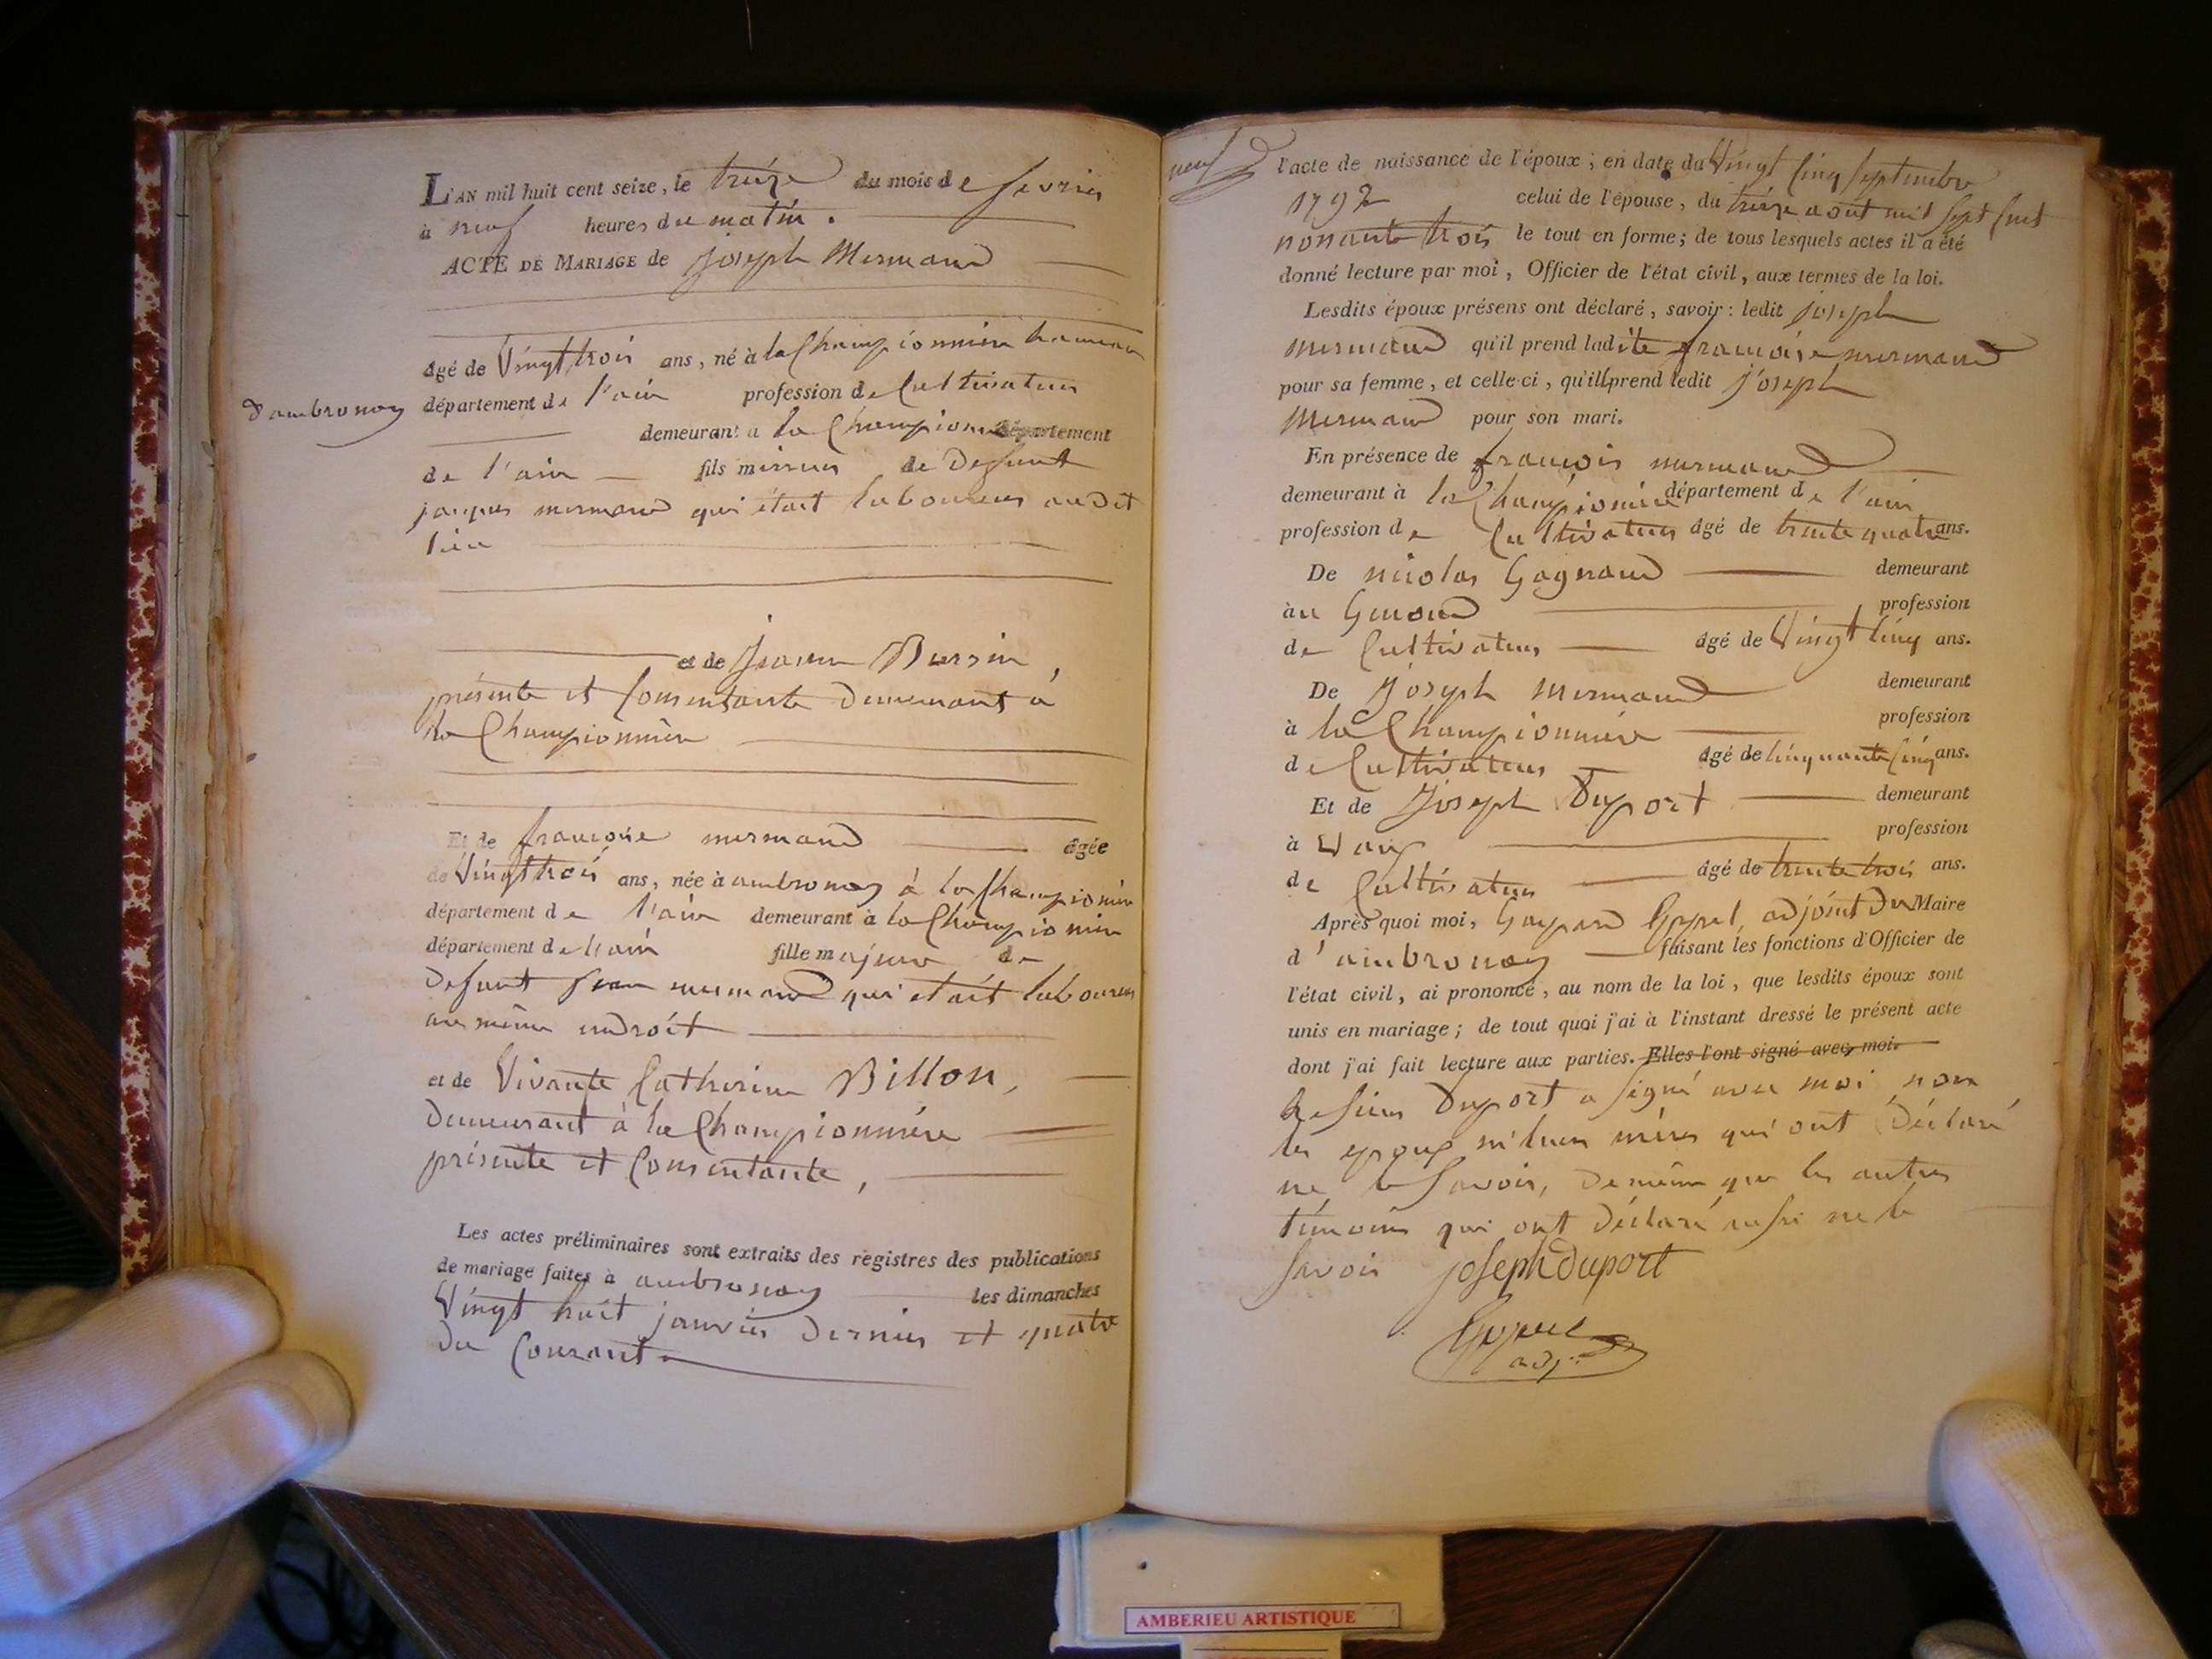 L'AN mil huit cent seize, le treize du mois de fevrier
à neuf heures du matin.
ACTE DE MARIAGE de Joseph Mermand
âgé de Vingt trois ans, né à la Championnière hameau
d'ambronay
département de l'ain profession de Cultivateur
demeurant a la Championnière département
de l'ain fils mineur de Defunt
jacques mermand qui était laboureur audit
lieu
et de
présente et Consentante Demeurant à
la Championnière
Et de françoise mermand âgée
de Vingt trois ans, née à ambronay à la Championière
département de l'ain demeurant à la Championière
département de l'ain fille majeure de
Defunt Jean mermand qui etait laboureur
au même endroit
et de Vivante Catherine Billon,
Demeurant à la Championnière
présente et Consentante,
Les actes préliminaires sont extraits des registres des publications
de mariage faites à ambronay les dimanches
Vingt huit janvier Dernier et quatre
du Courant
neuf
l'acte de naissance de l'époux; en date du Vingt Cinq Septembre
1792 celui de l'épouse, du treize aout mil Sept Cent
nonante trois le tout en forme; de tous lesquels actes il a été
donné lecture par moi, Officier de l'état civil, aux termes de la loi.
Lesdits époux présens ont déclaré, savoir: ledit joseph
mermand qu'il prend ladite françoise mermand
pour sa femme, et celle-ci, qu'ill prend ledit joseph
Mermand pour son mari.
En présence de françois mermand
demeurant à la Championière département de l'ain
profession de Cultivateur âgé de trente quatre ans.
De nicolas Gagnaud demeurant
àu Genoud profession
de Cultivateur âgé de Vingt Cinq ans.
De Joseph mermand demeurant
à la Championnière profession
de Cultivateur âgé de Cinquante Cinq ans.
Et de Joseph Duport demeurant
à Vaux profession
de Cultivateur âgé de trente trois ans.
Après quoi moi, Gaspard adjoint Du Maire
d'ambronay faisant les fonctions d'Officier de
l'état civil, ai prononcé, au nom de la loi, que lesdits époux sont
unis en mariage; de tout quoi j'ai à l'instant dressé le présent acte
dont j'ai fait lecture aux parties. Elles l'ont signé avec moi.
Le sieur Duport a signé avec moi non
les epoux ni leurs mères qui ont Déclaré
ne le Savoir, De même que les autres
témoins qui ont Déclaré aussi ne le
Savoir joseph duport
adj.
AMBERIEU ARTISTIQUE